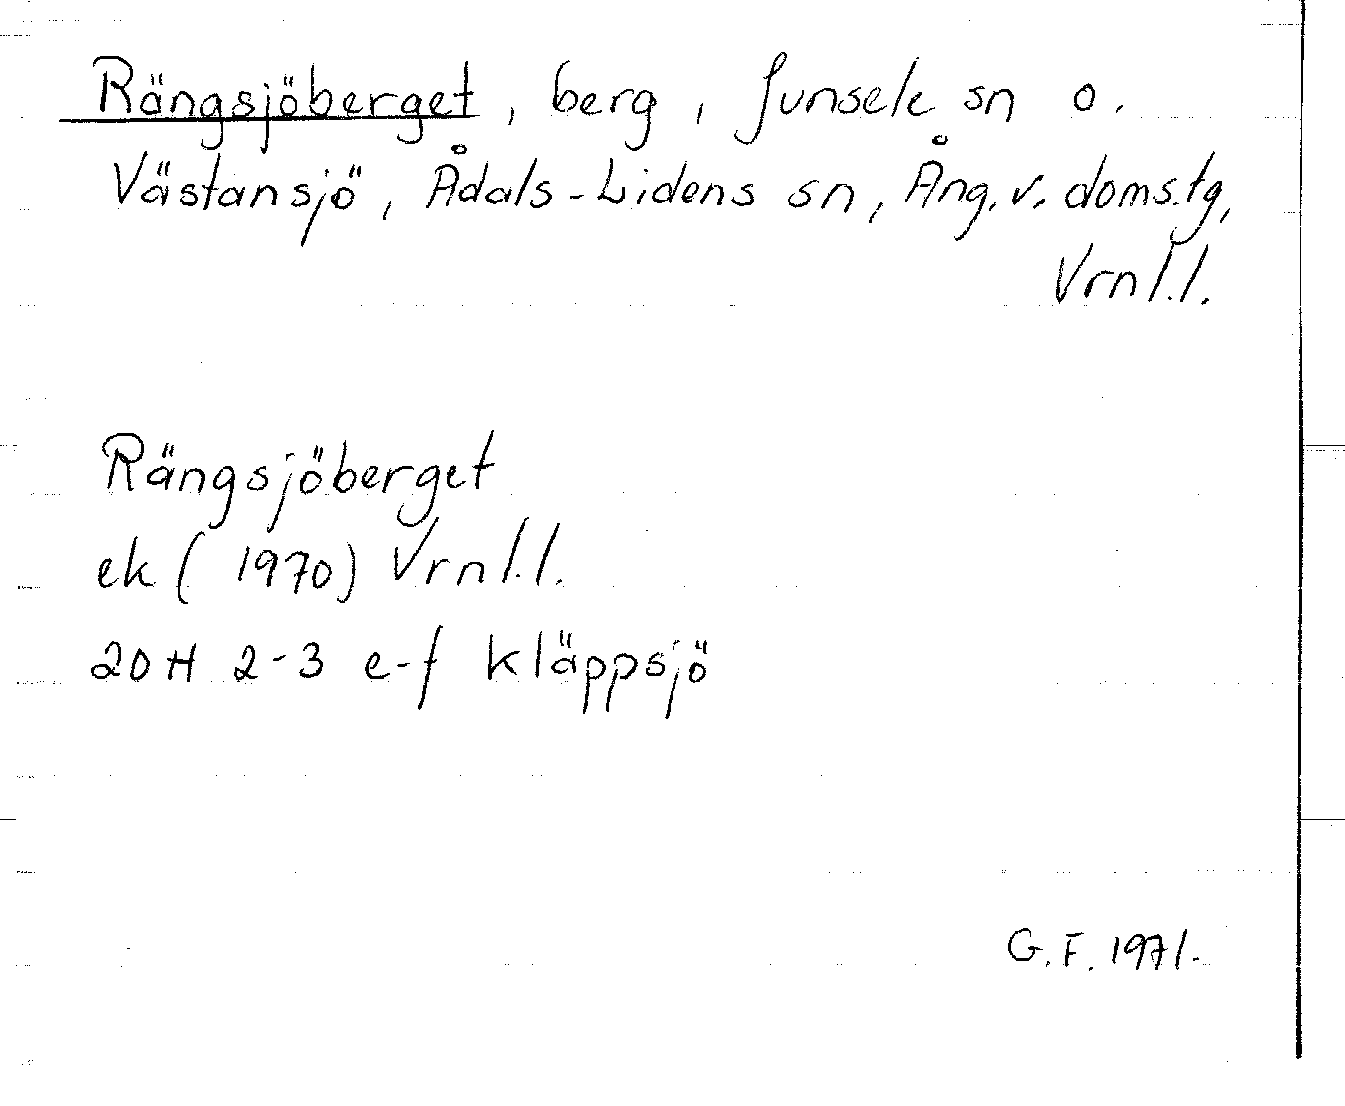 Rängsjöberget, berg, Junsele sn o.
Västansjö, Ådals-Lidens sn, Ång. v. doms.tg,
Vrnl.l.
Rängsjöberget
ek (1970) Vrnl.l.
20H 2-3 e-f kläppsjö
G.F. 1971.